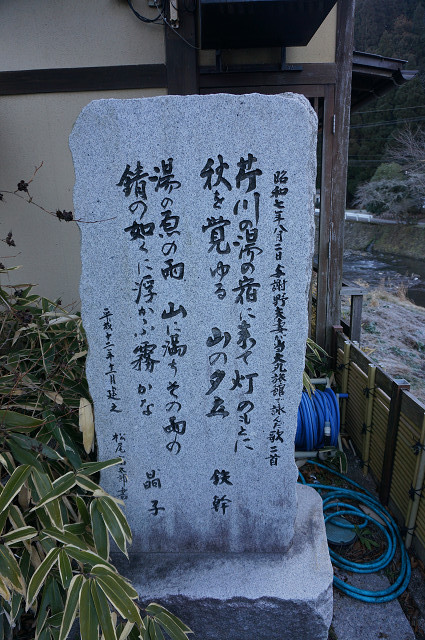 昭和七年八月二日与謝野夫妻当丸旅館で詠んだ歌二首
芹川の湯の宿に来て灯のもとに
秋を覚ゆる 山の夕立
鉄幹
湯の原の雨 山に満ちその雨の
錆の如くに浮かぶ霧かな
晶子
平成十二年十二月建之
松尾